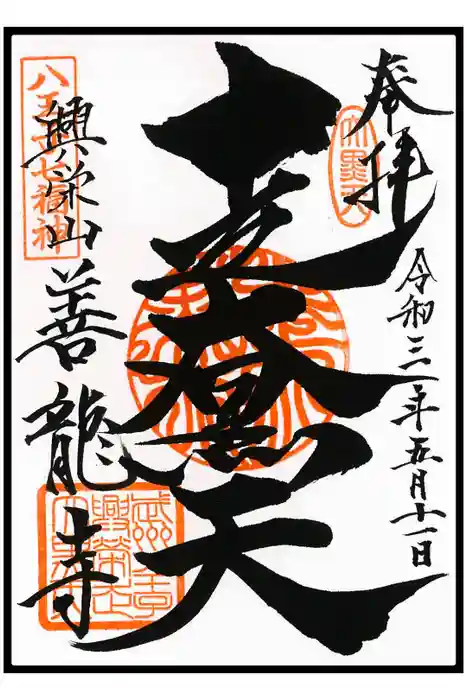 奉拝
大黒天
令和三年五月十一日
走大黒天
八王子七福神
興栄山
善龍寺